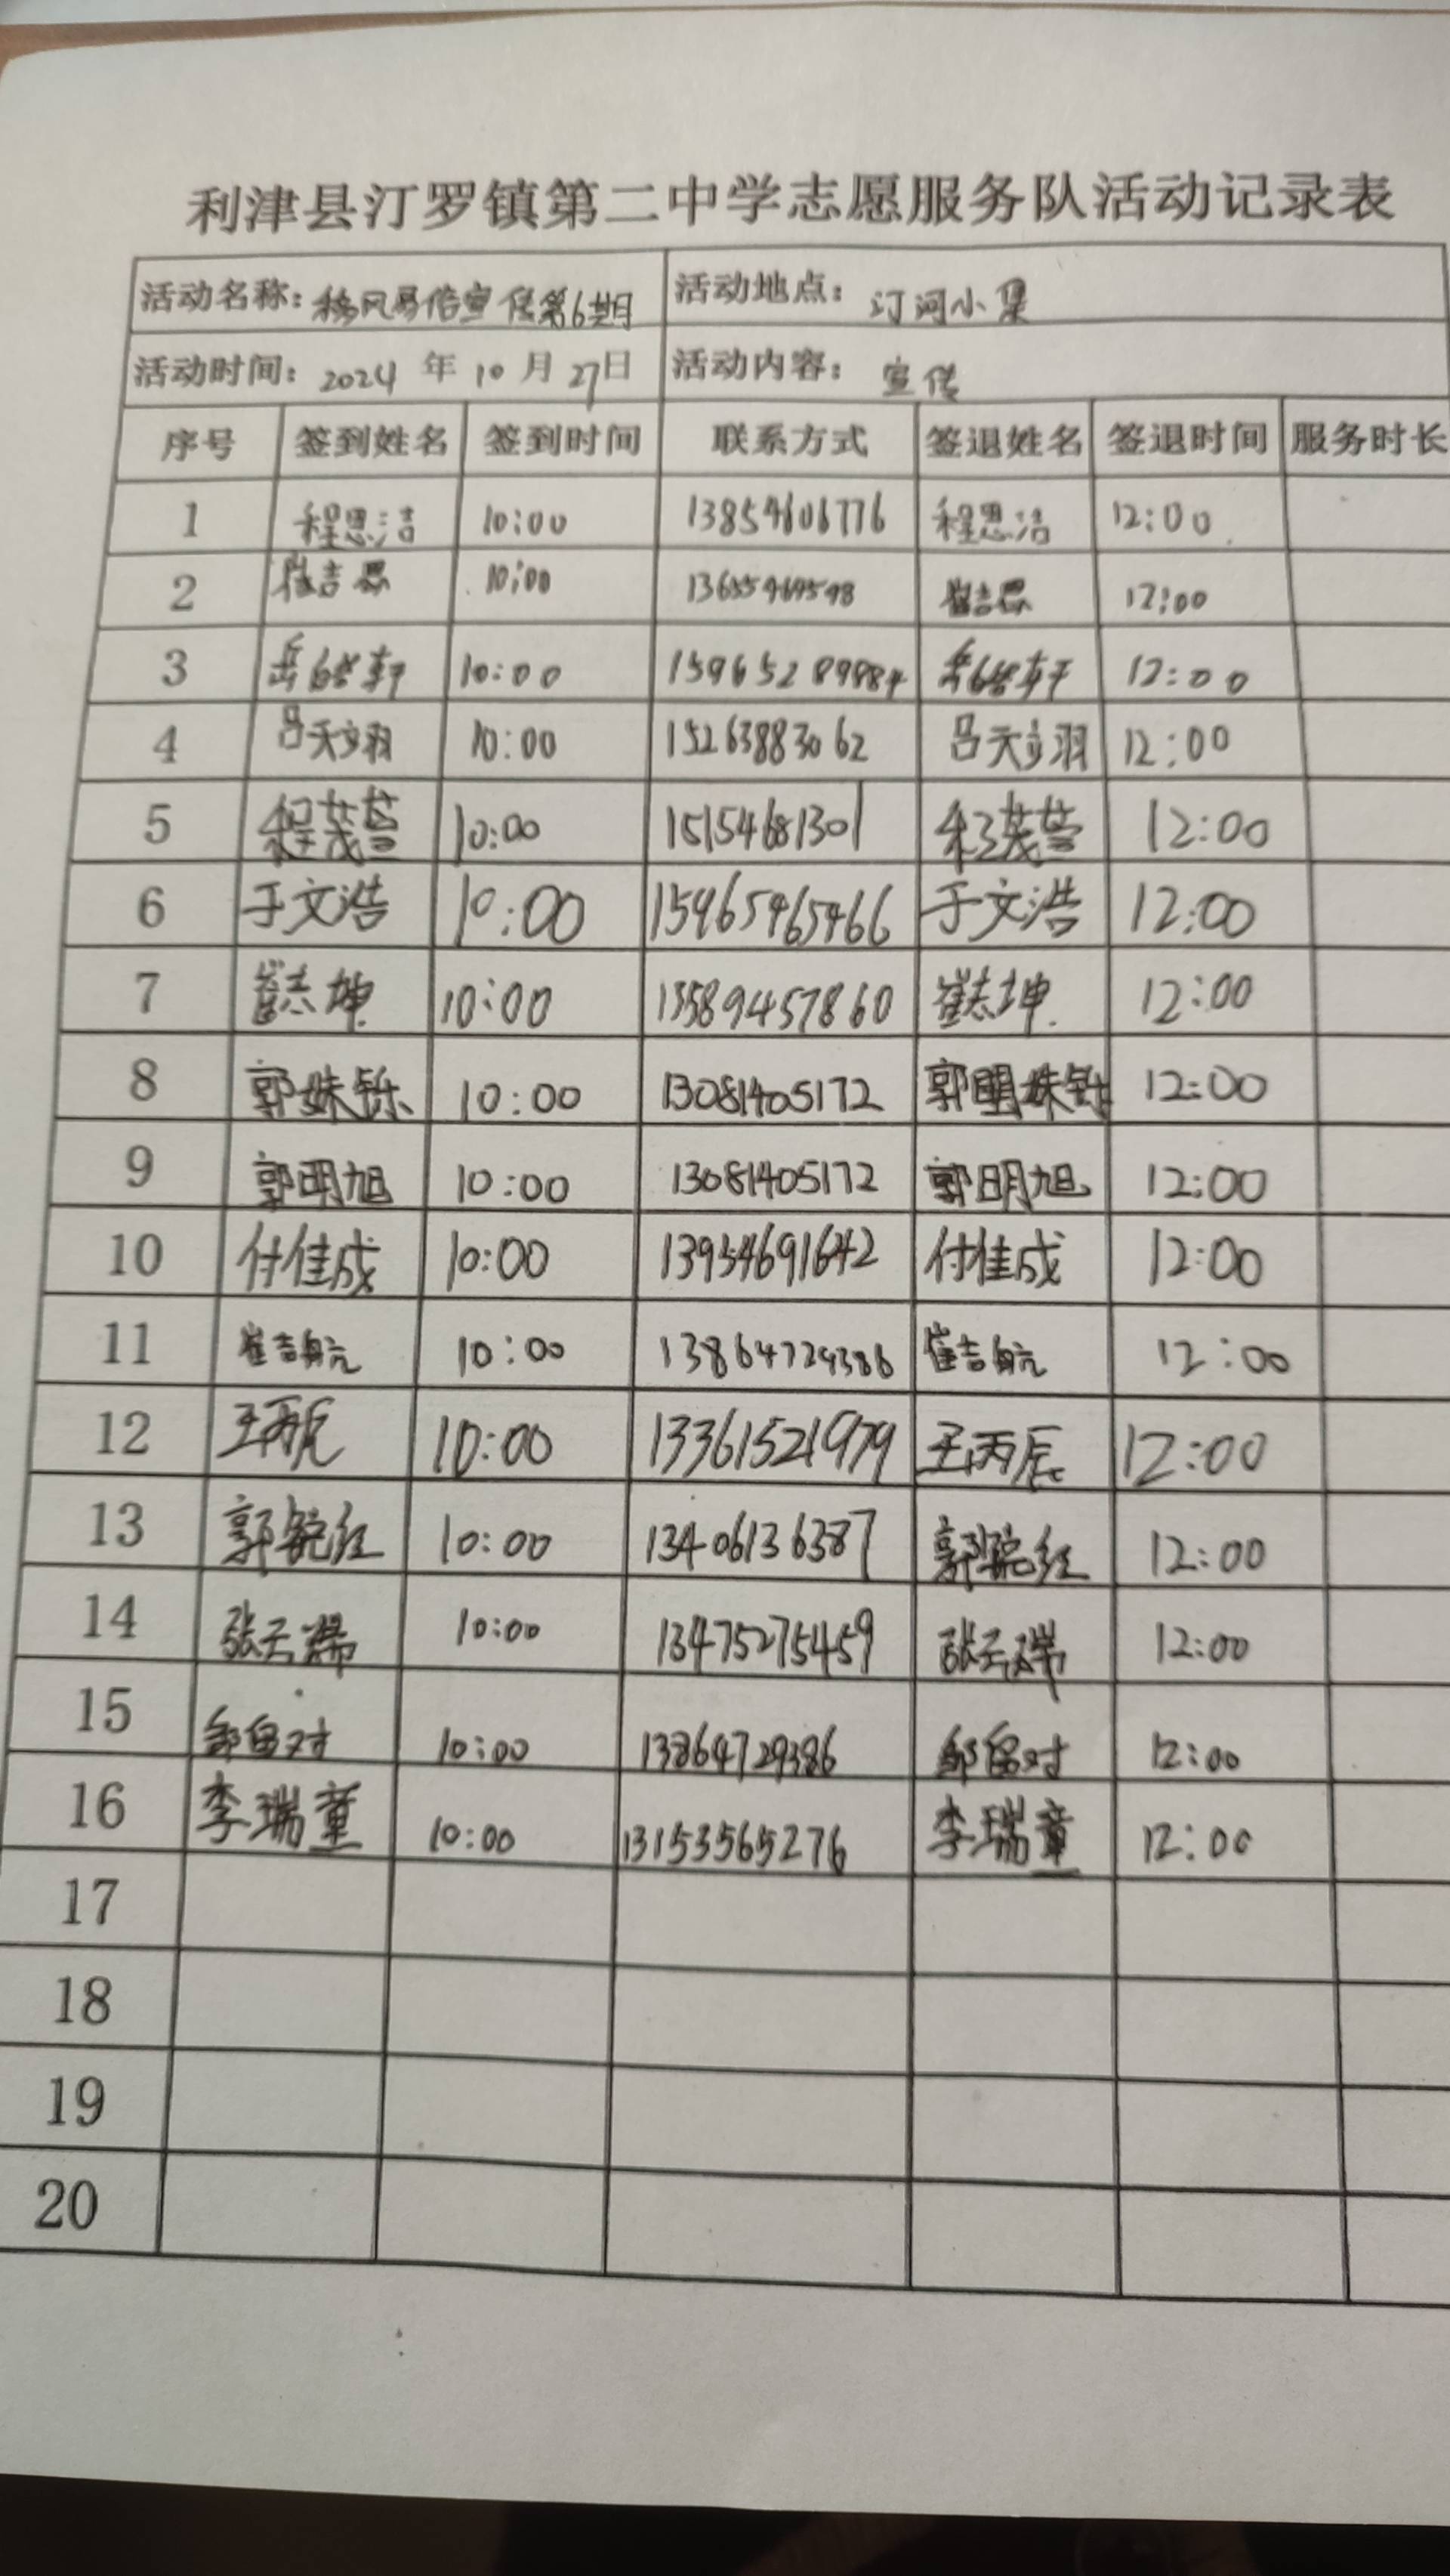 利津县汀罗镇第二中学志愿服务队活动记录表
活动名称：移风易俗宣传第6期 活动地点：汀河小集
活动时间：2024 年 10 月 27日 活动内容：宣传
序号 签到姓名 签到时间 联系方式 签退姓名 签退时间 服务时长
1 程思洁 10:00 13854606776 程思洁 12:00
2 崔吉思 10:00 崔吉思 12:00
3 10:00 15965289984 12:00
4 吕天翊 10:00 15263883062 吕天翊 12:00
5 程茂萱 10:00 15154681301 程茂萱 12:00
6 于文浩 10:00 15965465466 于文浩 12:00
7 崔志坤 10:00 13589457860 崔志坤 12:00
8 郭姝铄 10:00 13081405172 郭明姝铄 12:00
9 郭明旭 10:00 13081405172 郭明旭 12:00
10 付佳成 10:00 13954691642 付佳成 12:00
11 崔吉航 10:00 13864729386 崔吉航 12:00
12 王丙辰 10:00 13361521979 王丙辰 12:00
13 10:00 13406136387 12:00
14 张云瑞 10:00 13475275459 张云瑞 12:00
15 10:00 13864729386 12:00
16 李瑞童 10:00 13153565276 李瑞童 12:00
17
18
19
20